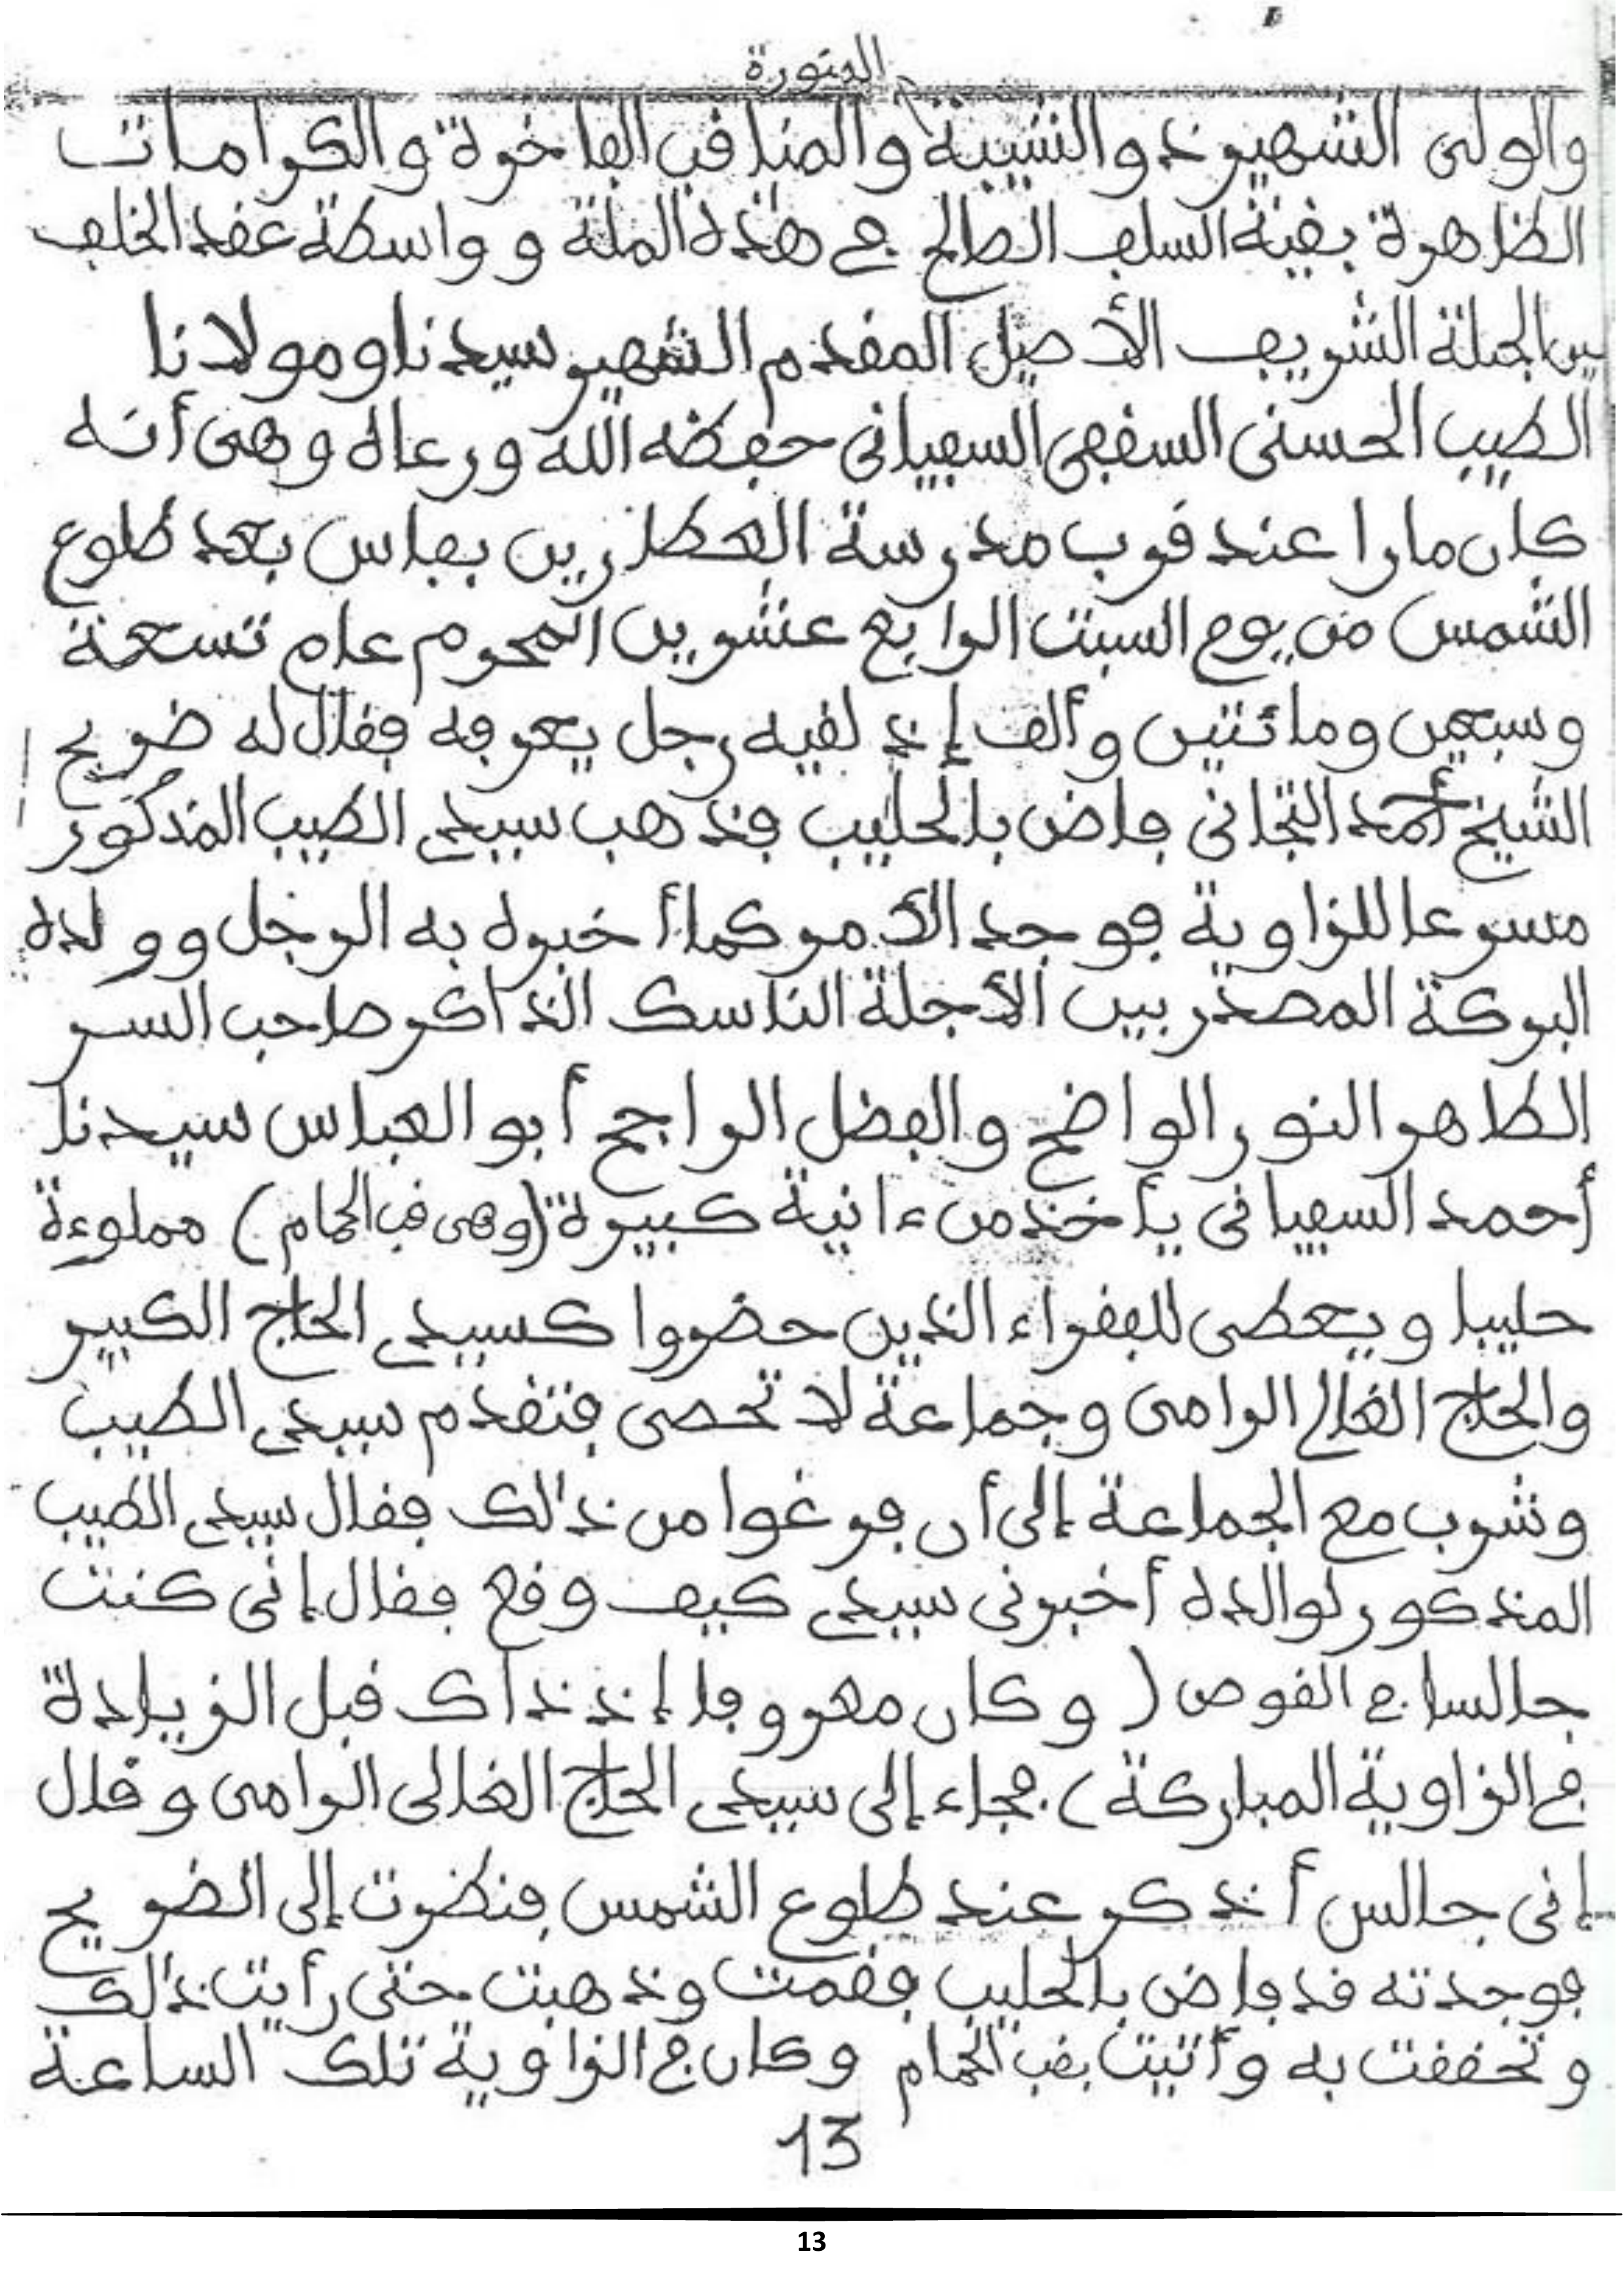 المنورة
والولى الشهير ذو الشيبة والمناقب الفاخرة والكرامات
الظاهرة بقية السلف الصالح في هذه الملة و واسطة عقد الخلف
بين الجلة الشريف الأصيل المقدم الشهير سيدنا ومولانا
الطيب الحسنى السفيانى حفظه الله ورعاه وهى أنه
كان مارا عند قرب مدرسة العطارين بفاس بعد طلوع
الشمس من يوم السبت الرابع عشرين المحرم عام تسعة
وسبعين ومائتين وألف إذ لقيه رجل يعرفه فقال له ضريح
الشيخ أحمد التجانى فاض بالحليب فذهب سيدى الطيب المذكور
مسرعا للزاوية فوجد الأمر كما أخبره به الرجل ووالده
البركة المصدر بين الأجلة الناسك الذاكر صاحب السر
الظاهر النور الواضح والفضل الراجح أبو العباس سيدنا
أحمد السفيانى يأخذ من ءانية كبيرة (وهى قب الحمام) مملوءة
حليبا ويعطى للفقراء الذين حضروا كسيدى الحاج الكبير
والحاج الغالى الرامى وجماعة لا تحصى فتقدم سيدى الطيب
وشرب مع الجماعة إلى أن فرغوا من ذلك فقال سيدى الطيب
المذكور لوالده أخبرنى سيدى كيف وقع فقال إنى كنت
جالسا في القوس (وكان معروفا إذ ذاك قبل الزيادة
في الزاوية المباركة). فجاء إلى سيدى الحاج الغالى الرامى وقال
إنى جالس أذكر عند طلوع الشمس فنظرت إلى الضريح
فوجدته قد فاض بالحليب فقمت وذهبت حتى رأيت ذلك
وتحققت به وأتيت بقب الحمام وكان في الزاوية تلك الساعة
13
13